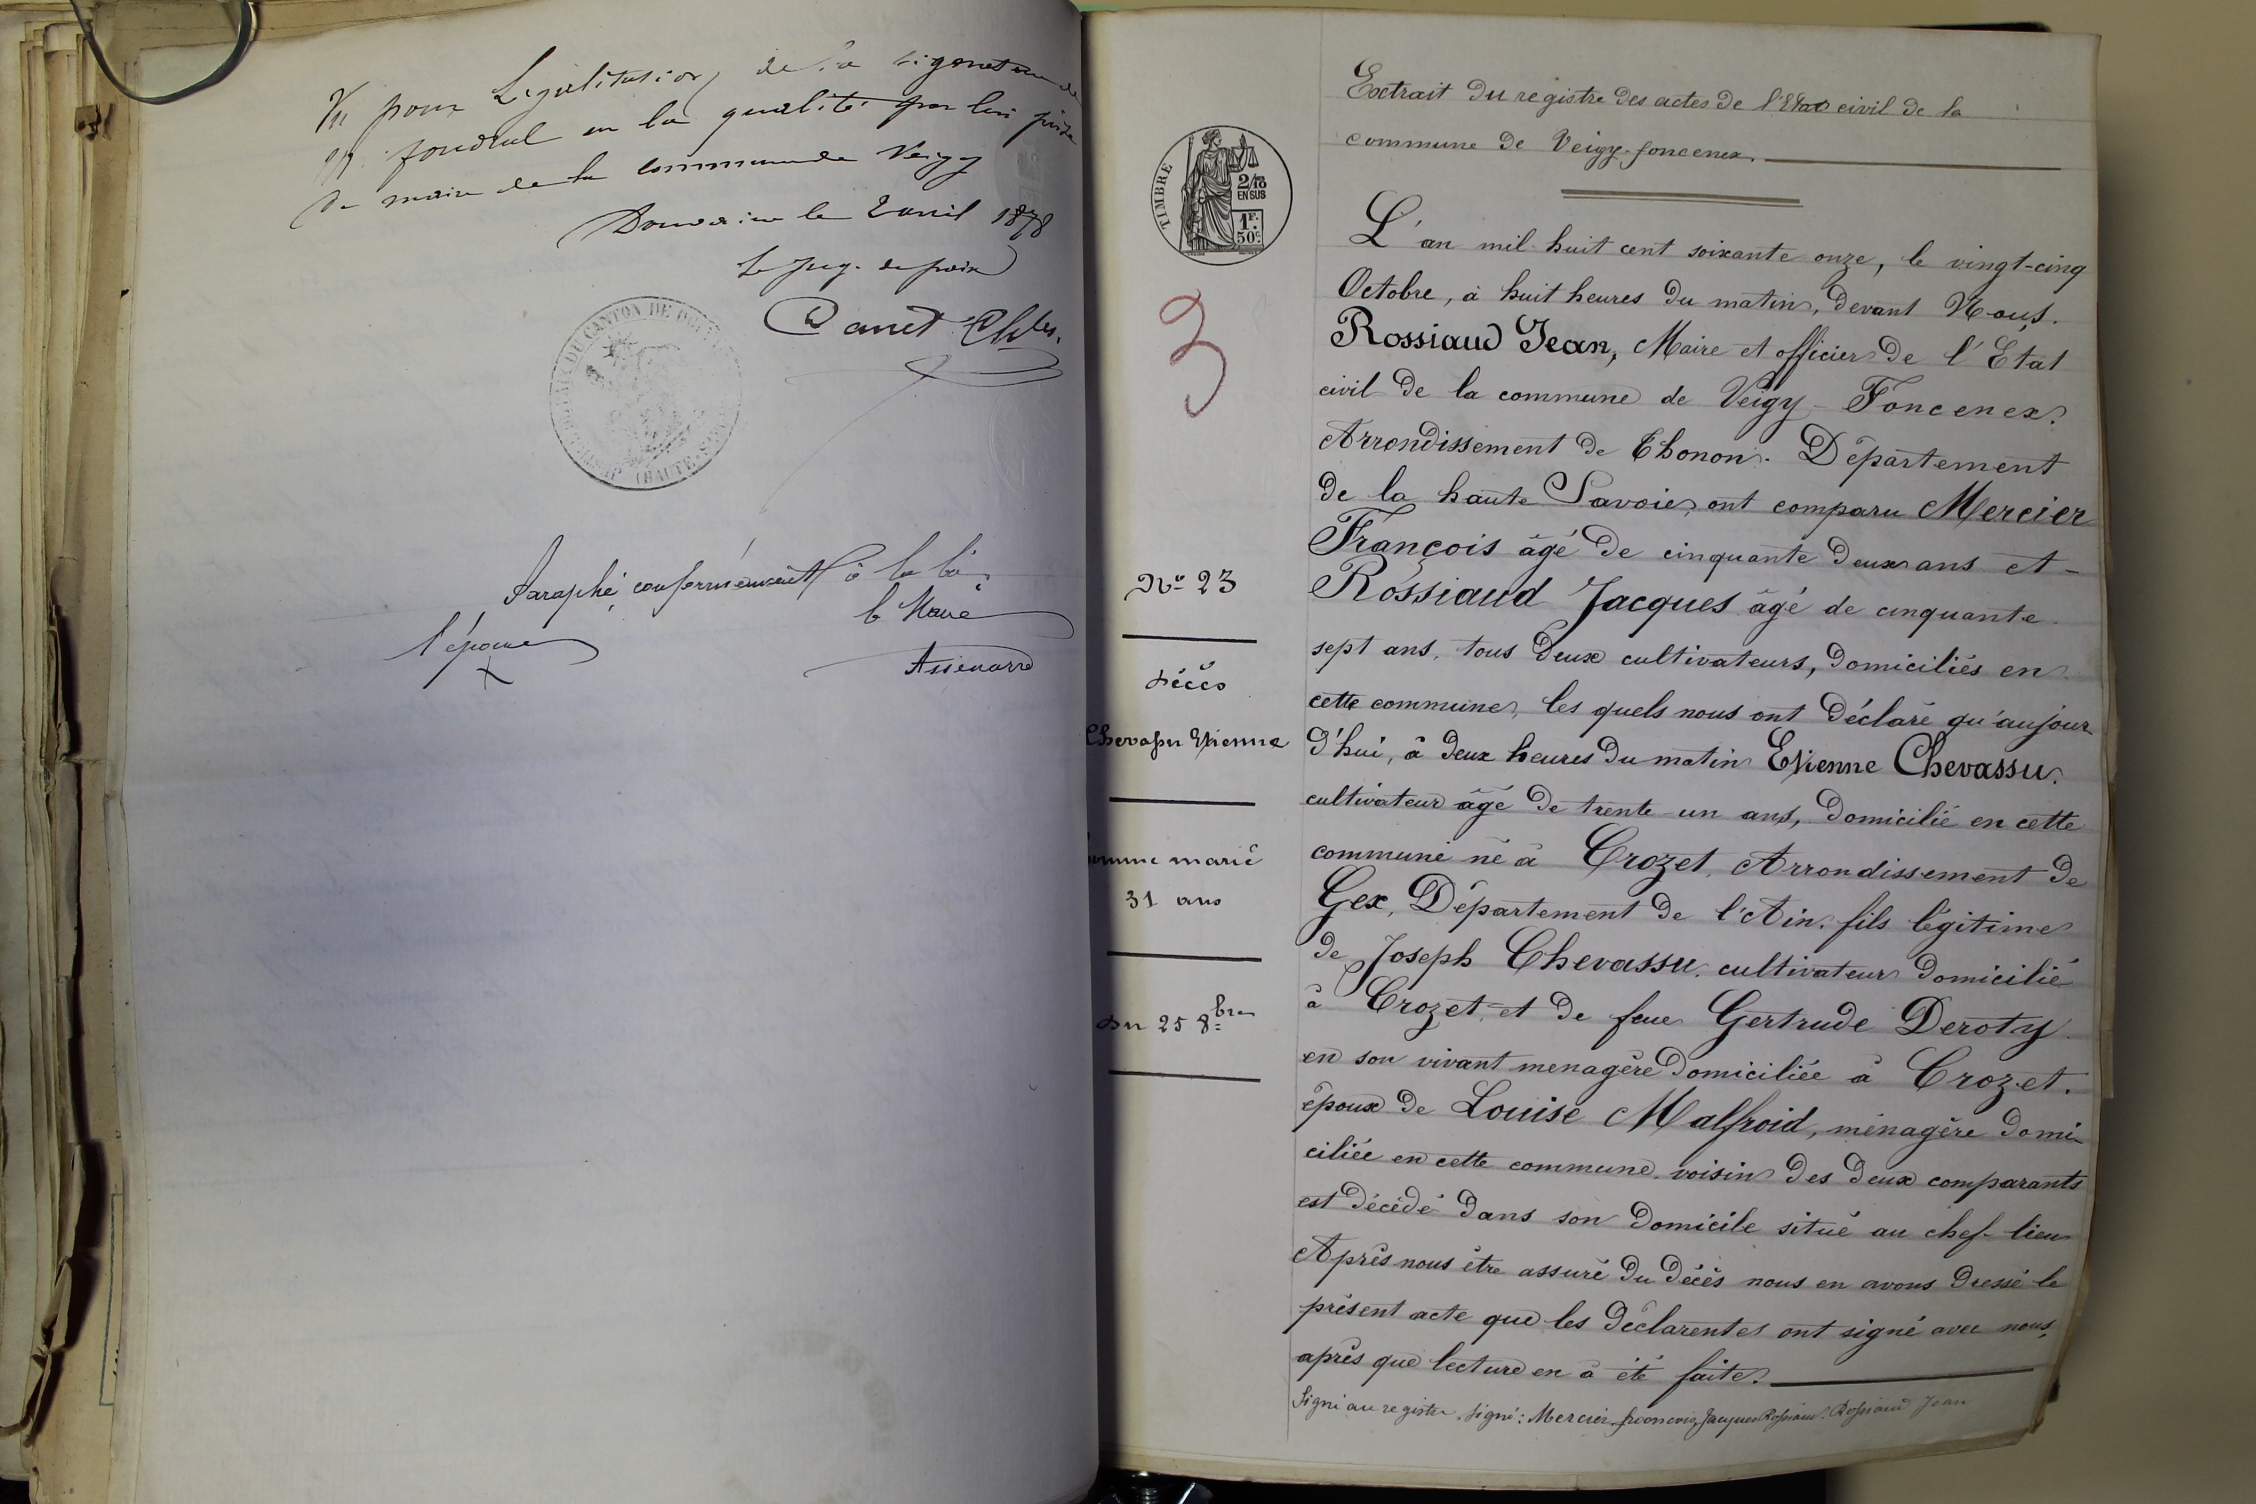 Vu pour Légalisation de la signature de
Mr foudral en la qualité par lui prise
de maire de la commune de Veigy
Douvaine le 2 avril 1878
Le juge de paix
Canet Chles.
DU CANTON DE
(HAUTE-S
Paraphé conformément à la loi
l'épouse
le Maire
X
TIMBRE
2/10
EN SUS
1F.
50c.
3
No 23
décès
Chevassu Etienne
homme marié
31 ans
du 25 8bre
Extrait du registre des actes de l'Etat civil de la
commune de Veigy-foncenex.
L'an mil huit cent soixante onze, le vingt-cinq
Octobre, à huit heures du matin, devant Nous.
Rossiaud Jean, Maire et officier de l'Etat
civil de la commune de Veigy-Foncenex.
Arrondissement de Thonon. Département
de la haute Savoie, ont comparu Mercier
François âgé de cinquante deux ans et-
Rossiaud Jacques âgé de cinquante
sept ans, tous deux cultivateurs, domiciliés en
cette commune, les quels nous ont déclaré qu'aujour
d'hui, à deux heures du matin Etienne Chevassu.
cultivateur âgé de trente-un ans, domicilié en cette
commune né à Crozet, Arrondissement de
Gex, Département de l'Ain. fils légitime
de Joseph Chevassu. cultivateur domicilié
à Crozet, et de feue Gertrude Deroty
en son vivant menagère domiciliée à Crozet.
époux de Louise Malfroid, ménagère domi-
ciliée en cette commune. voisin des deux comparants
est décédé dans son domicile situé au chef-lieu
Après nous être assuré du décès nous en avons dressé le
présent acte que les déclarentes ont signé avec nous,
après que lecture en à été faite.
Signé au registre. signé: Mercier françois, Jacques Rossiaud. Rossiaud Jean